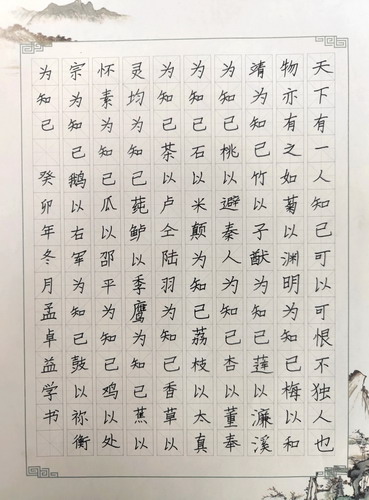 天下有一人知己可以可恨不独人也
物亦有之如菊以渊明为知己梅以和
靖为知己竹以子猷为知己莲以濂溪
为知己桃以避秦人为知己杏以董奉
为知己石以米颠为知己荔枝以太真
为知己茶以卢仝陆羽为知己香草以
灵均为知己莼鲈以季鹰为知己蕉以
怀素为知己瓜以邵平为知己鸡以处
宗为知己鹅以右军为知己鼓以祢衡
为知己 癸卯年冬月孟卓益学书